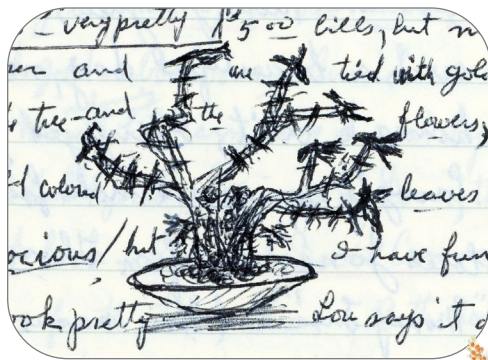 very pretty $5.00 bills, but
and are tied with gold
tree and the flowers,
colored leaves
ocious / but I have fun
ook pretty Lou says it